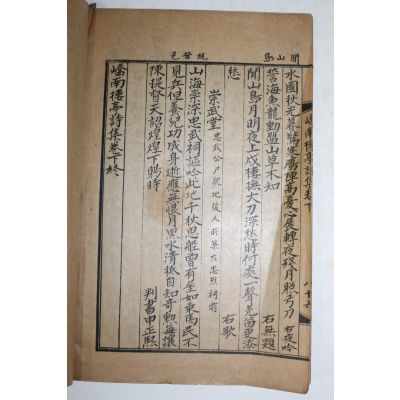 閒山島
統營邑
嶠南樓亭詩集卷下
八十六
水國秋光暮驚寒鴈陣高憂心展轉夜殘月照弓刀 右夜吟
誓海魚龍動盟山草木知 右無題
閒山島月明夜上戍樓撫大刀深愁時何處一聲羌笛更添
愁 右歌
崇武堂 忠武公尸親地後人所築在忠烈祠前
山海崇深忠武祠謳吟此地千秋思艇曾有坐如乘馬民不
見兵但養兒功成身逝應無恨月黑水清祗自知奇勳每讓
陳提督天詔煌煌下賜時 判書申正熙
嶠南樓亭詩集卷下終